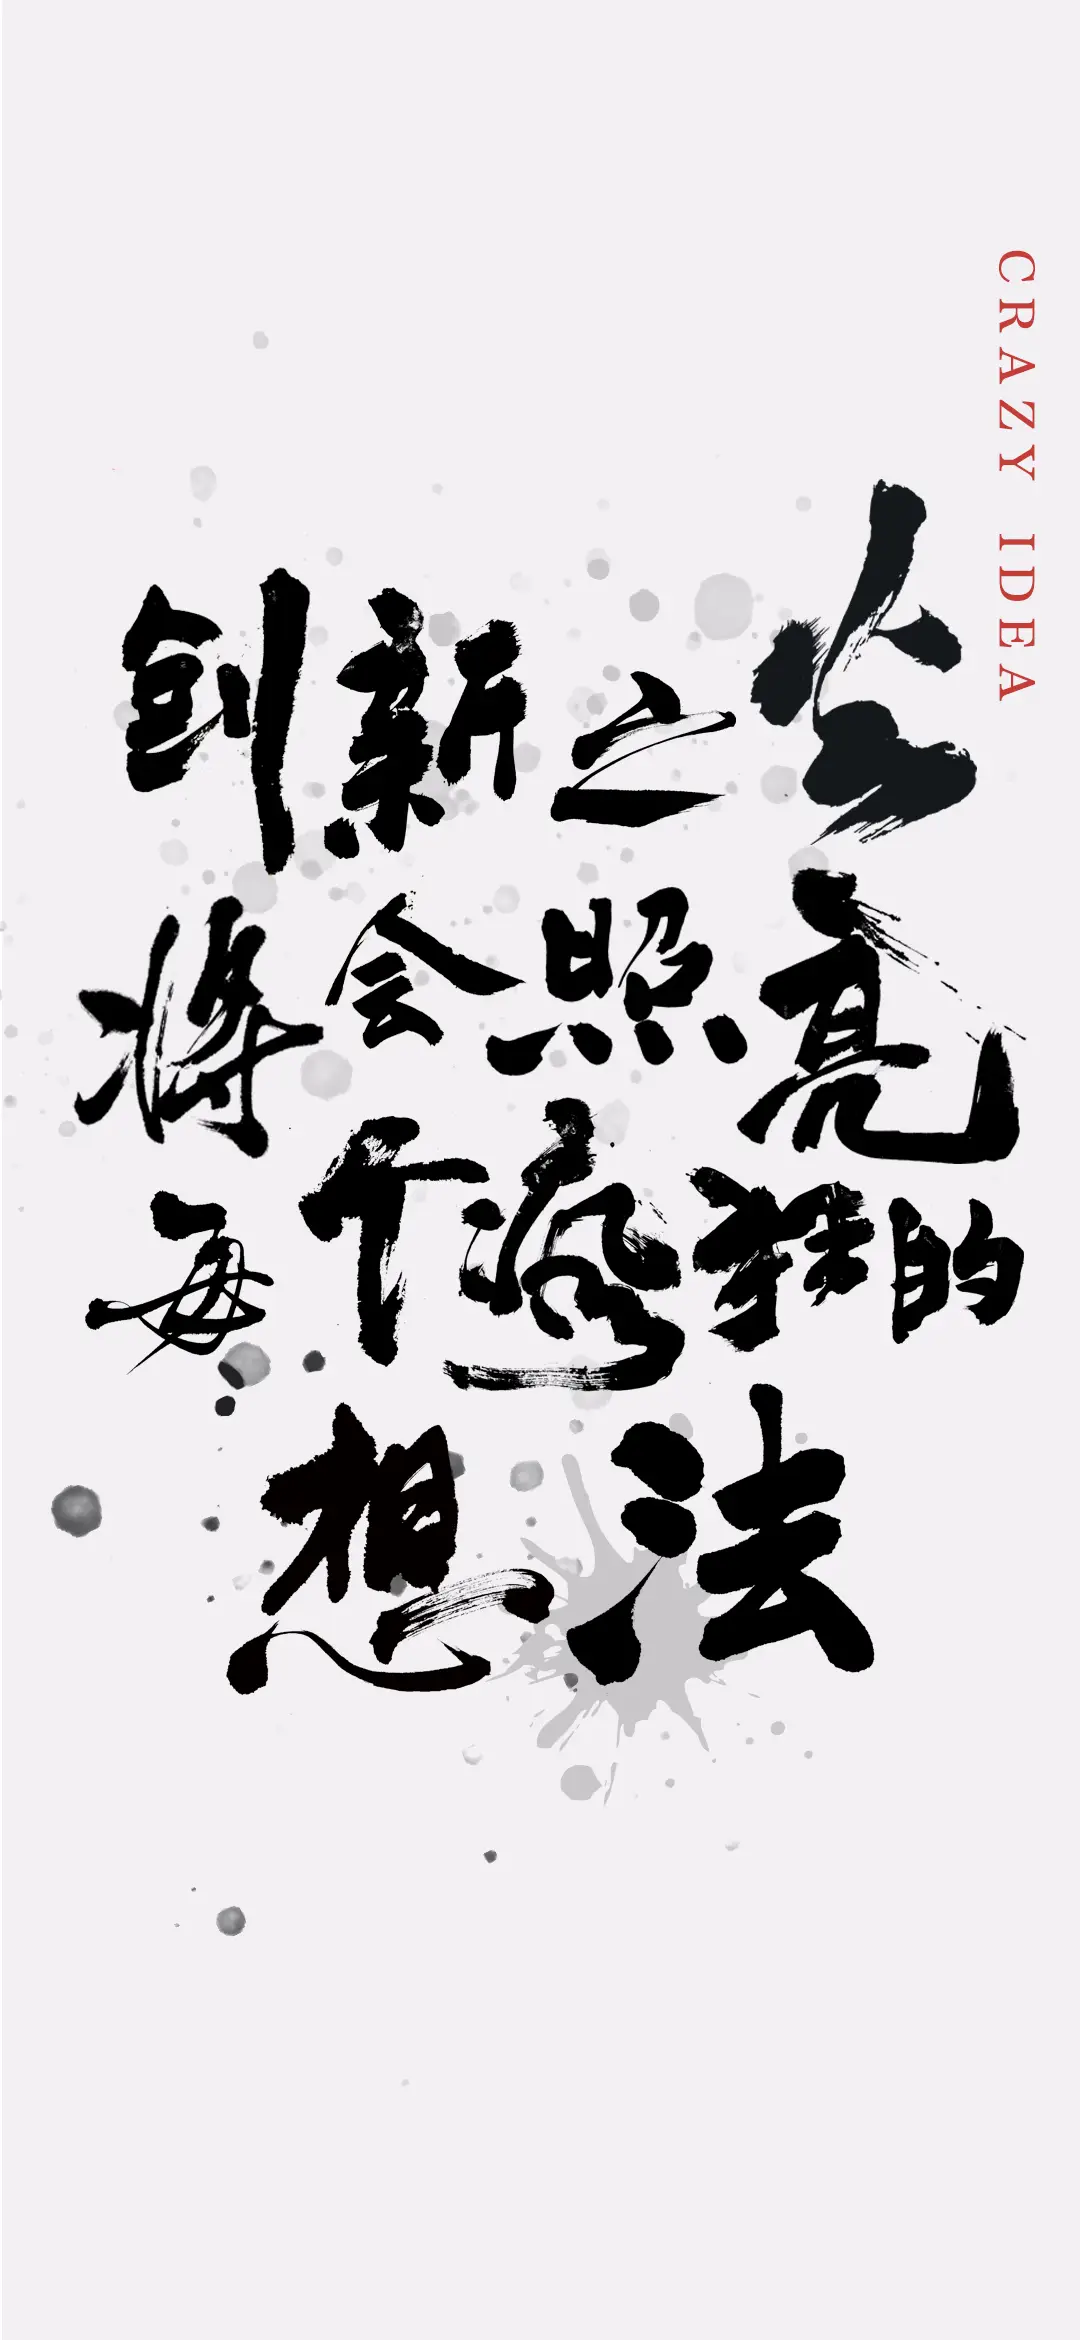 CRAZY IDEA
创新之火
将会照亮
每个疯狂的
想法